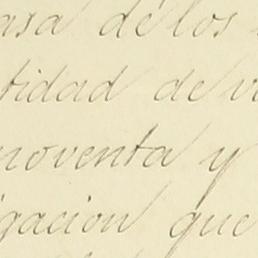 asa de los
tidad de v
noventa y
gacion que